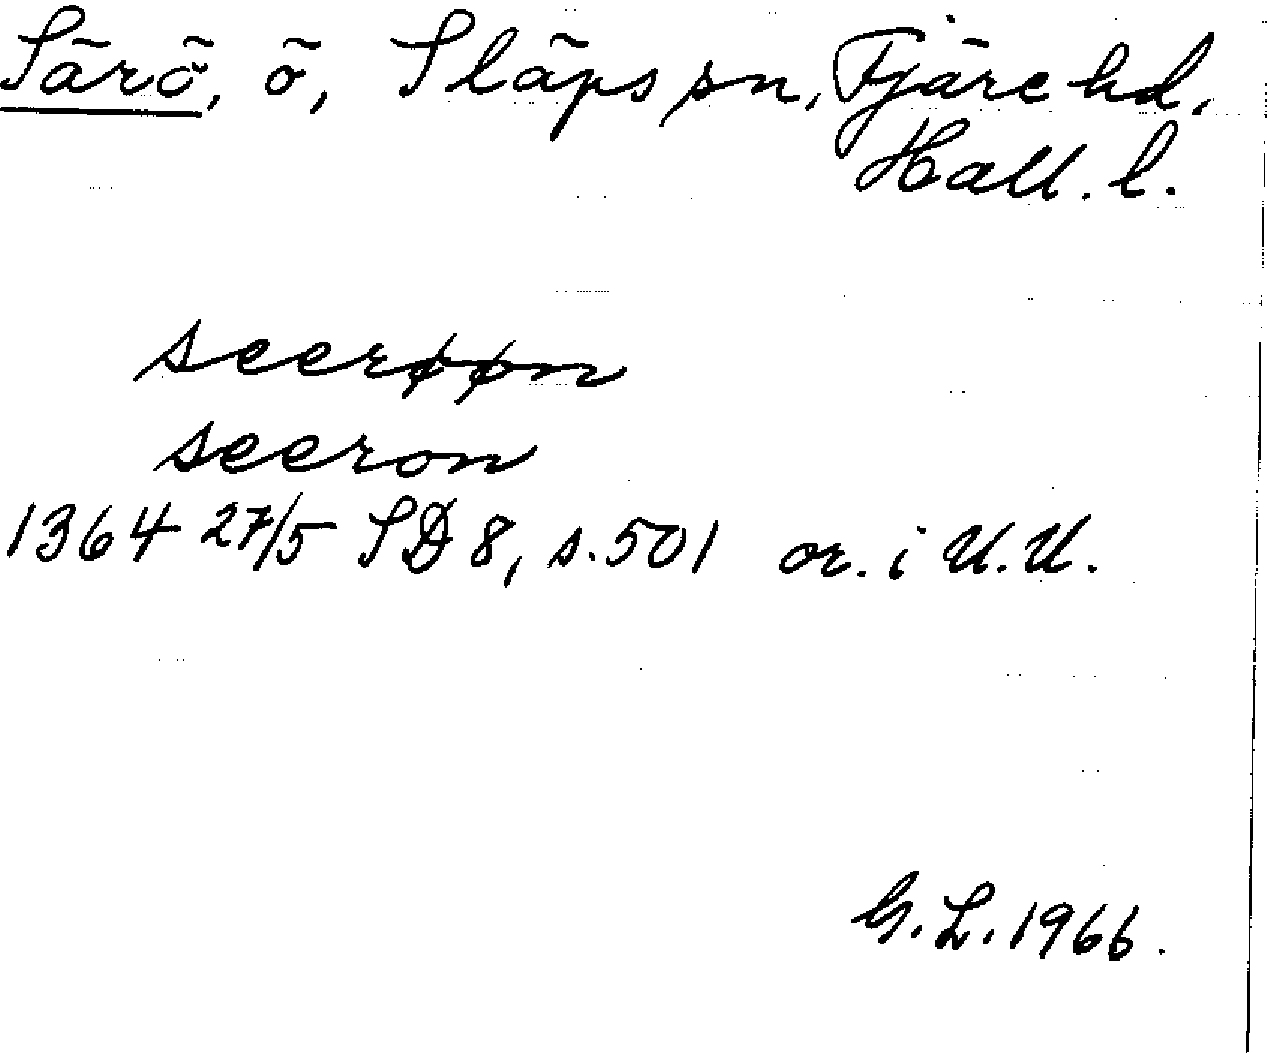 Särö, ö, Släps sn, Fjäre hd,
Hall. l.
seerøøn
seeron
1364 27/5 SD 8, s. 501 or. i U.U.
G. L. 1966.